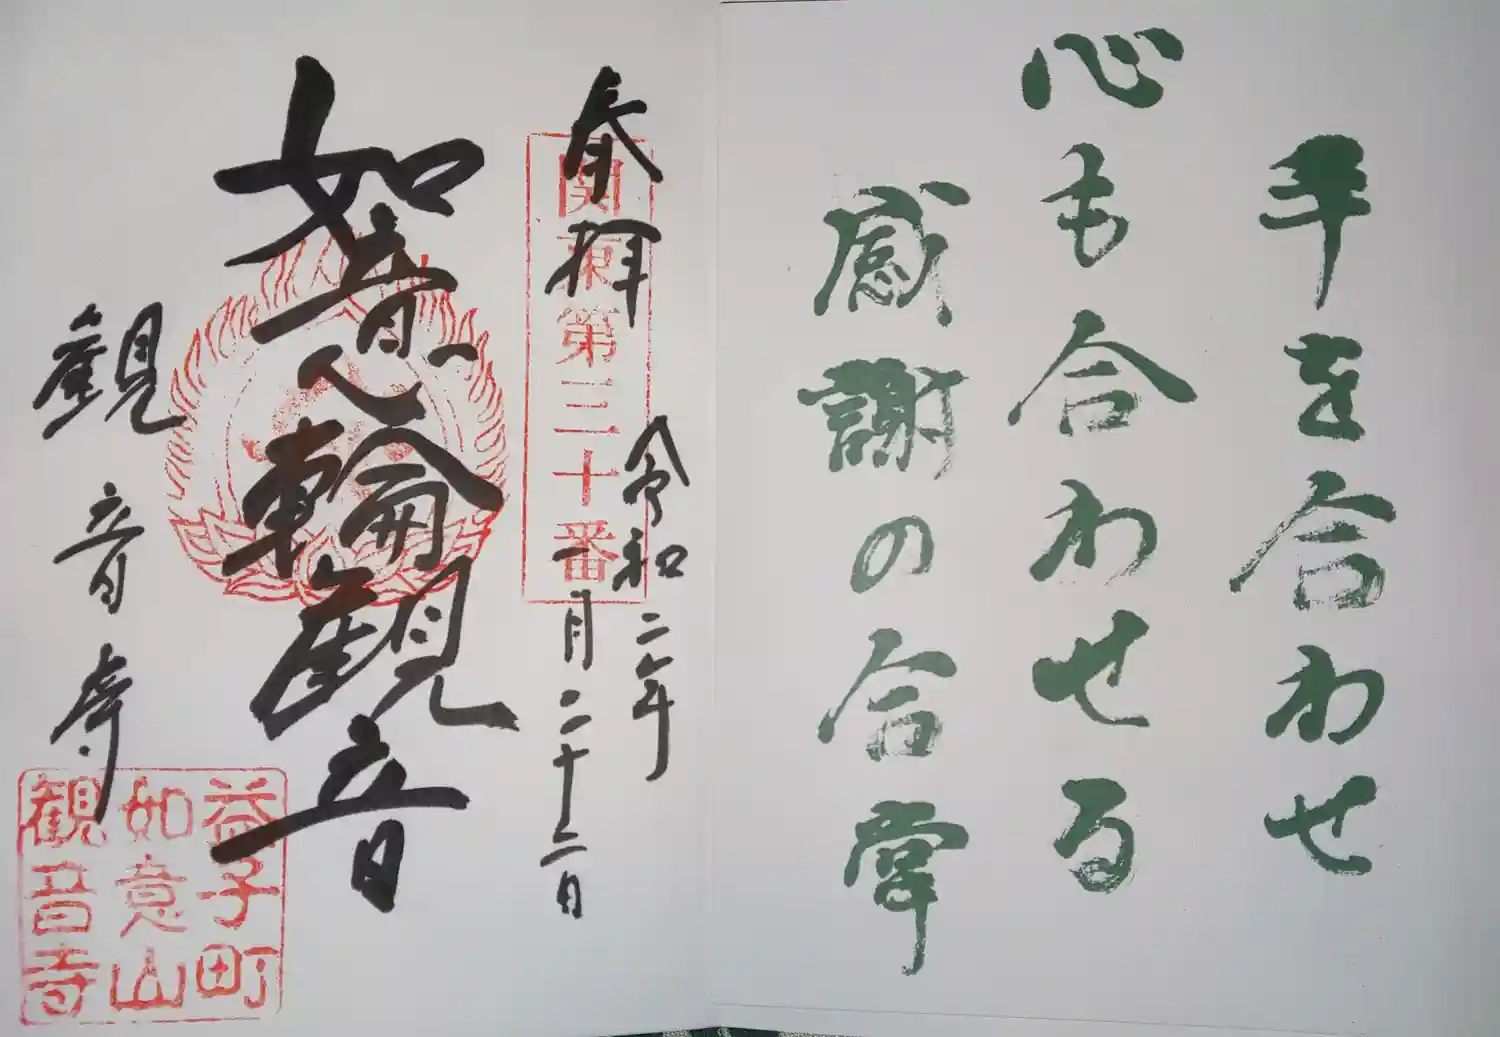 手を合わせ
心も合わせる
感謝の合掌
奉拝
関東第三十番
令和二年
一月二十二日
如意輪観音
観音寺
益子町
如意山
観音寺